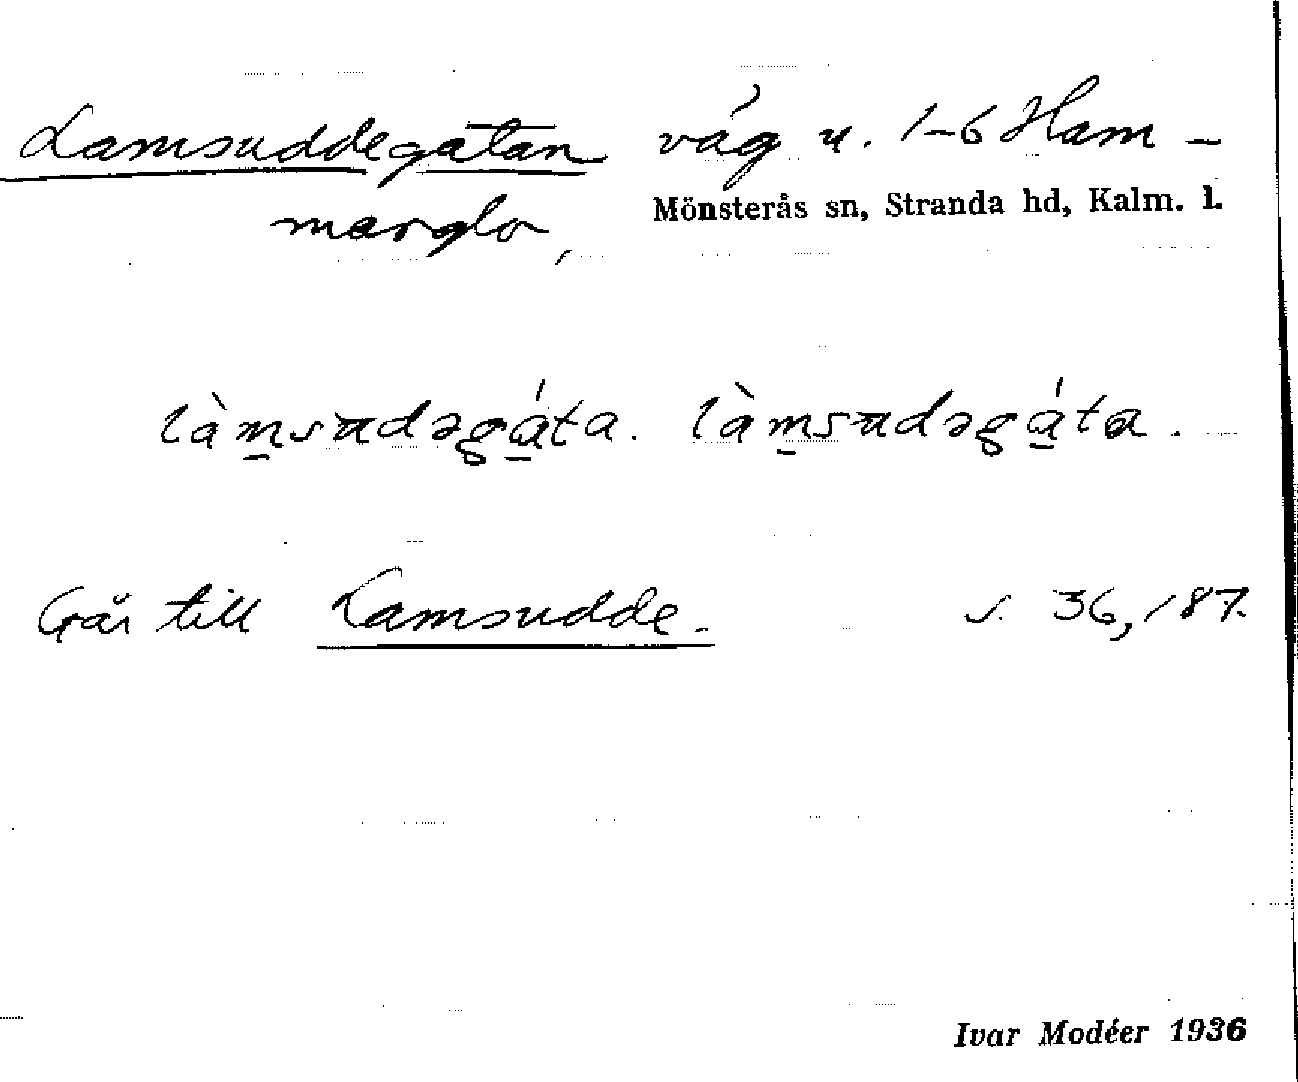 Lamsuddegatan väg u. 1-6 Ham-
marglo,
Mönsterås sn, Stranda hd, Kalm. l.
làmsudəgáta. làmsudəgáta.
Går till Lamsudde. s. 36, 187.
Ivar Modéer 1936